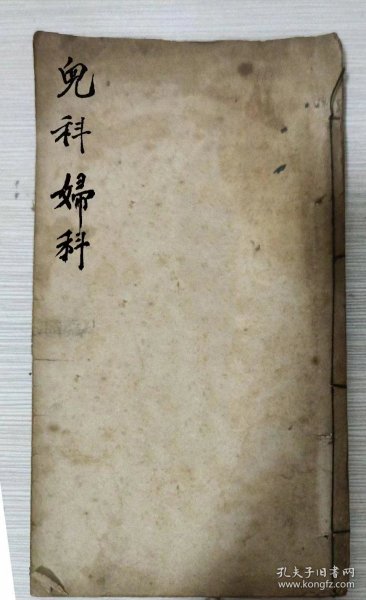 兒科婦科
孔夫子旧书网
www.kongfz.com